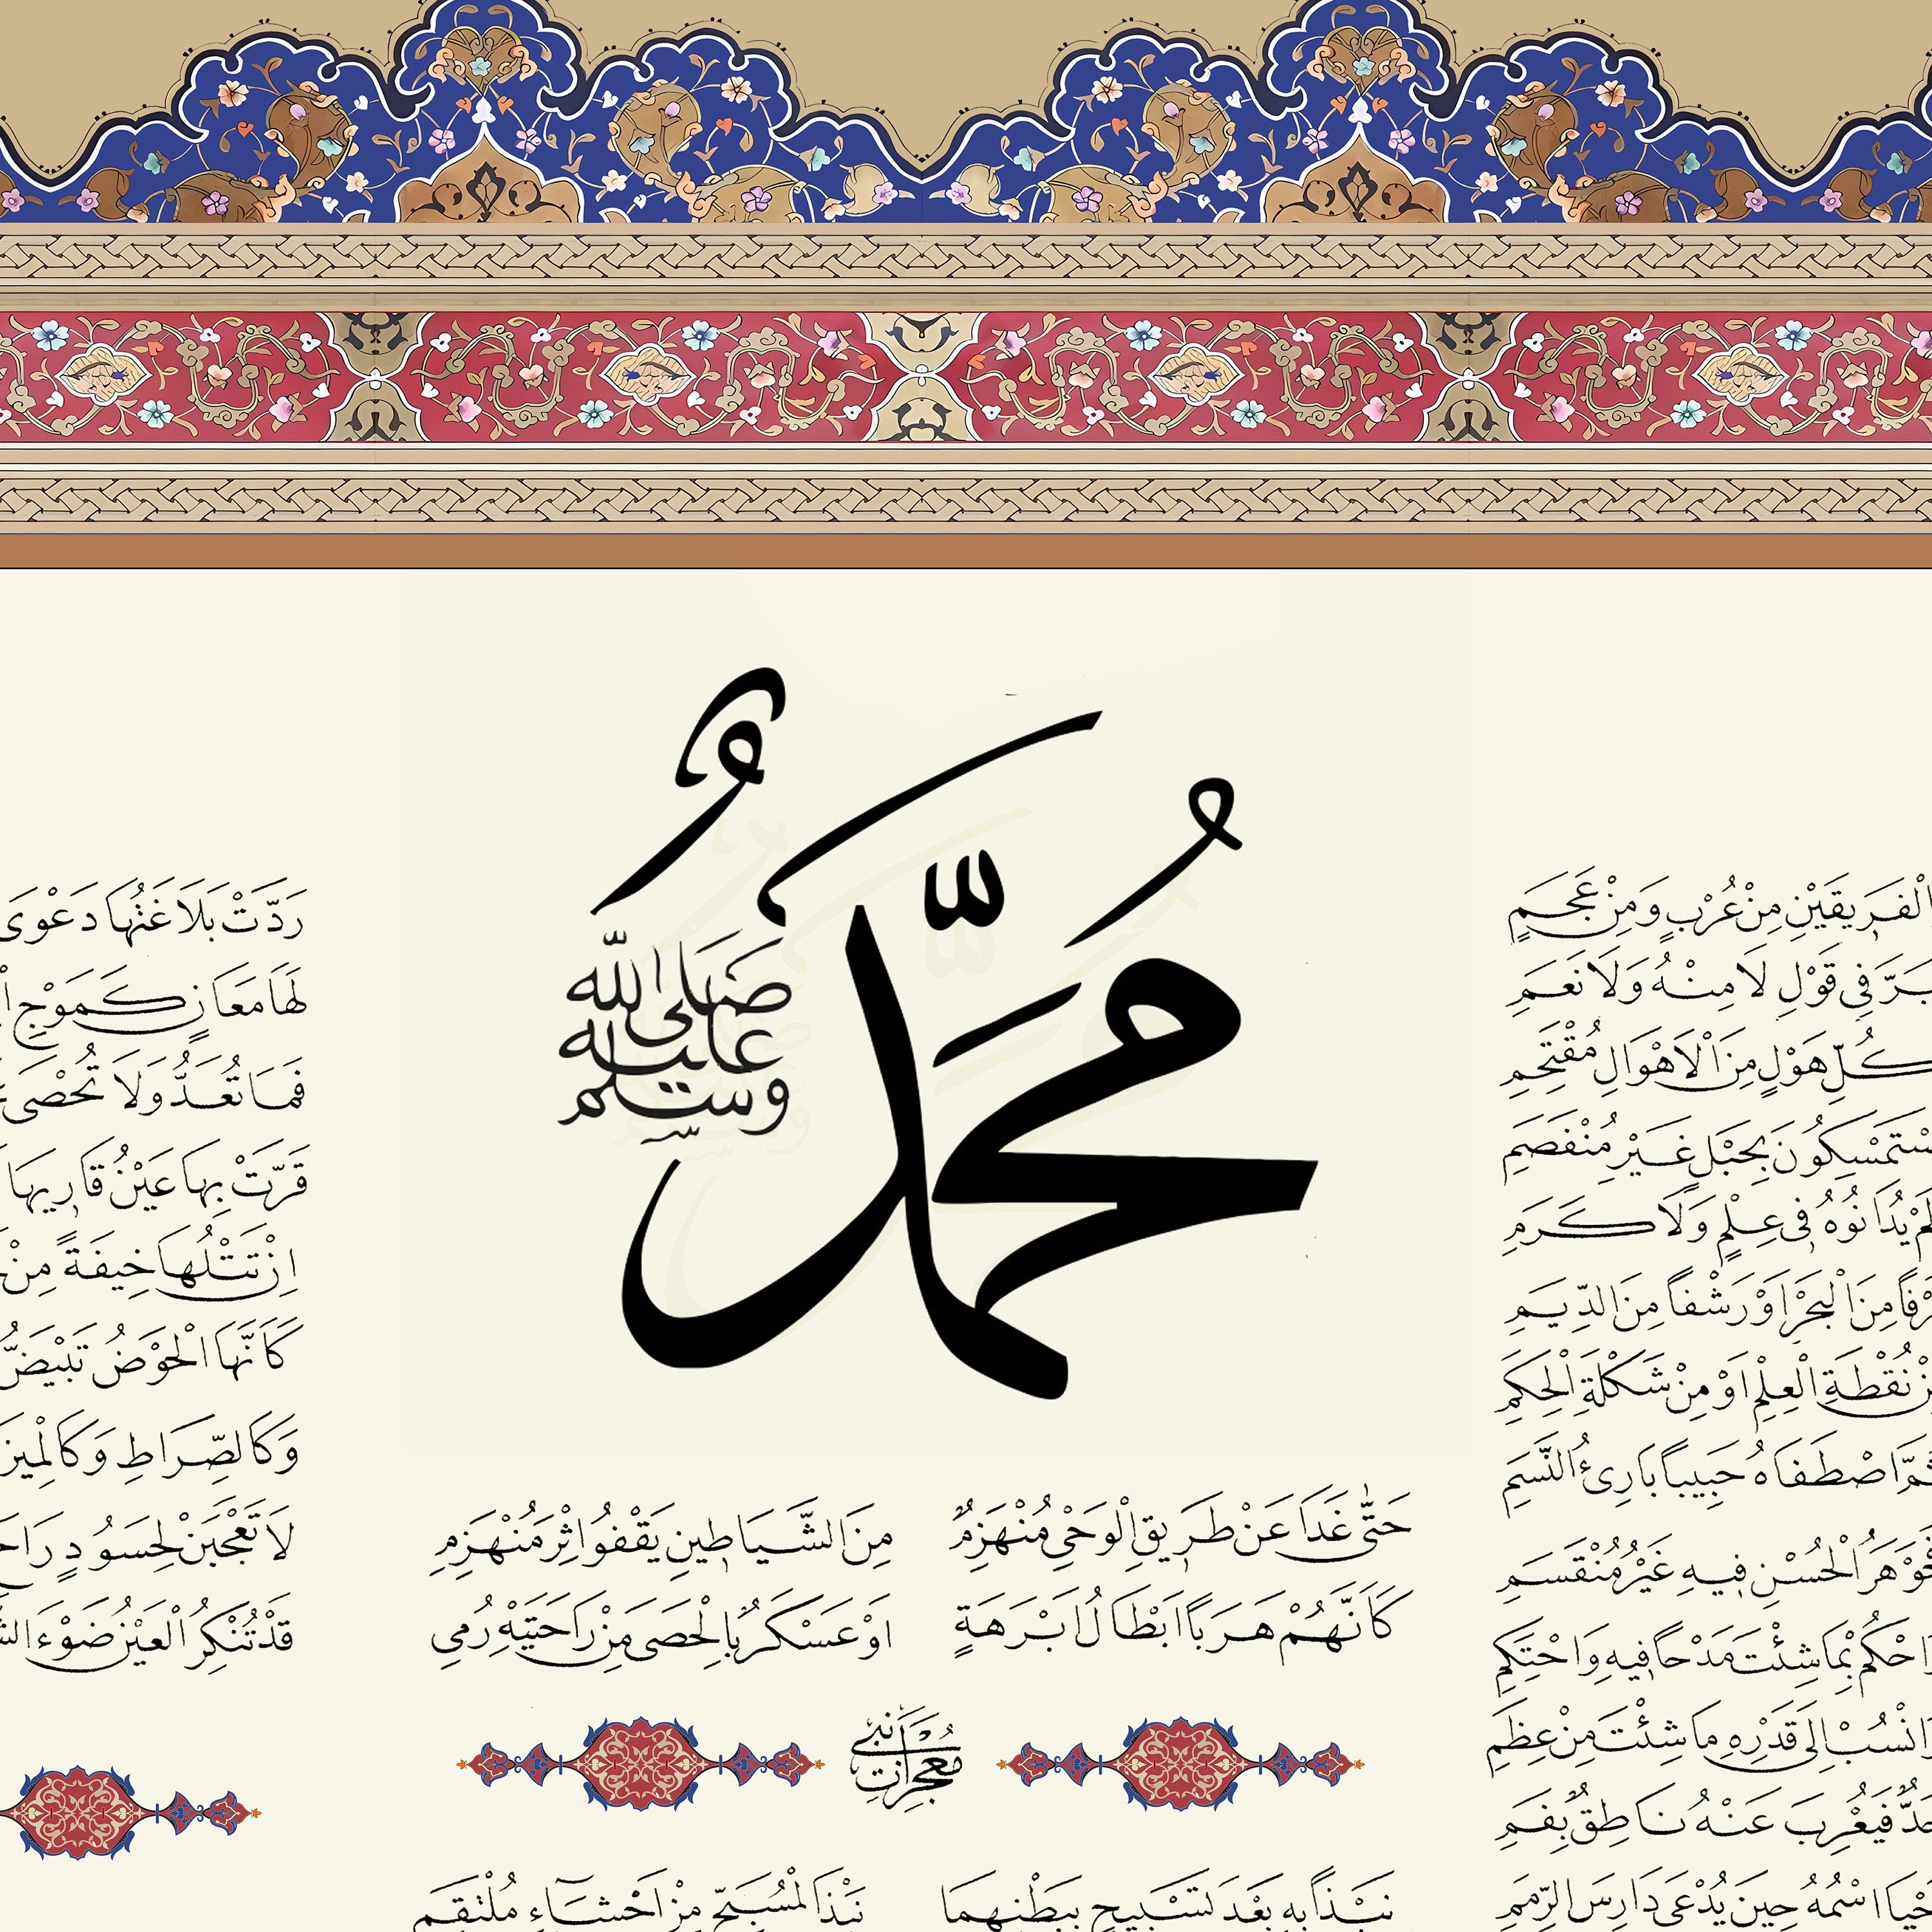 الْفَرِيقَيْنِ مِنْ عُرْبٍ وَمِنْ عَجَمٍ
اَبَرَّ فِي قَوْلِ لَا مِنْهُ وَلَا نَعَمِ
كُلِّ هَوْلٍ مِنَ الْاَهْوَالِ مُقْتَحِمِ
مُسْتَمْسِكُونَ بِحَبْلٍ غَيْرِ مُنْفَصِمِ
لَمْ يُدَانُوهُ فِي عِلْمٍ وَلَا كَرَمِ
غَرْفًا مِنَ الْبَحْرِ اَوْ رَشْفًا مِنَ الدِّيَمِ
مِنْ نُقْطَةِ الْعِلْمِ اَوْ مِنْ شَكْلَةِ الْحِكَمِ
ثُمَّ اصْطَفَاهُ حَبِيبًا بَارِئُ النَّسَمِ
فَجَوْهَرُ الْحُسْنِ فِيهِ غَيْرُ مُنْقَسَمِ
وَاحْكُمْ بِمَا شِئْتَ مَدْحًا فِيهِ وَاحْتَكِمِ
وَانْسُبْ اِلَى قَدْرِهِ مَا شِئْتَ مِنْ عِظَمِ
حَدٌّ فَيُعْرِبَ عَنْهُ نَاطِقٌ بِفَمِ
اَحْيَا اسْمُهُ حِينَ يُدْعَى دَارِسَ الرِّمَمِ
مُحَمَّدٌ
صَلَّى اللّٰهُ
عَلَيْهِ
وَسَلَّمَ
حَتَّى غَدَا عَنْ طَرِيقِ الْوَحْيِ مُنْهَزِمٌ مِنَ الشَّيَاطِينِ يَقْفُوا اِثْرَ مُنْهَزِمِ
كَاَنَّهُمْ هَرَبًا اَبْطَالُ اَبْرَهَةٍ اَوْ عَسْكَرٌ بِالْحَصَى مِنْ رَاحَتَيْهِ رُمِي
مُعْجِزَاتِ نَبِي
نَبْذًا بِهِ بَعْدَ تَسْبِيحٍ بِبَطْنِهِمَا نَبْذَ الْمُسَبِّحِ مِنْ اَحْشَاءِ مُلْتَقِمِ
رَدَّتْ بَلَاغَتُهَا دَعْوَى
لَهَا مَعَانٍ كَمَوْجِ
فَمَا تُعَدُّ وَلَا تُحْصَى
قَرَّتْ بِهَا عَيْنُ قَارِيهَا
اِنْ تَتْلُهَا خِيفَةً مِنْ
كَاَنَّهَا الْحَوْضُ تَبْيَضُّ
وَكَالصِّرَاطِ وَكَالْمِيزَ
لَا تَعْجَبَنْ لِحَسُودٍ رَاحَ
قَدْ تُنْكِرُ الْعَيْنُ ضَوْءَ